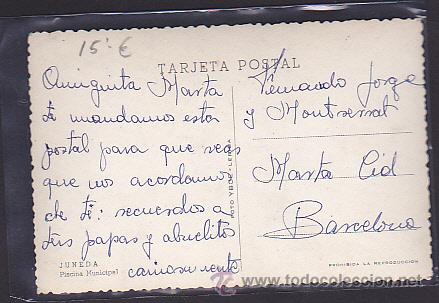 15'€
TARJETA POSTAL
Amiguita Marta
te mandamos esta
postal para que veas
que nos acordamos
de ti: recuerdos a
tus papas y abuelitos
cariñosamente
Fernando Jorge
y Montserrat
Marta Cid
Barcelona
FOTO YBOR-LERIDA
JUNEDA
Piscina Municipal
PROHIBIDA LA REPRODUCCION
www.todocoleccion.net